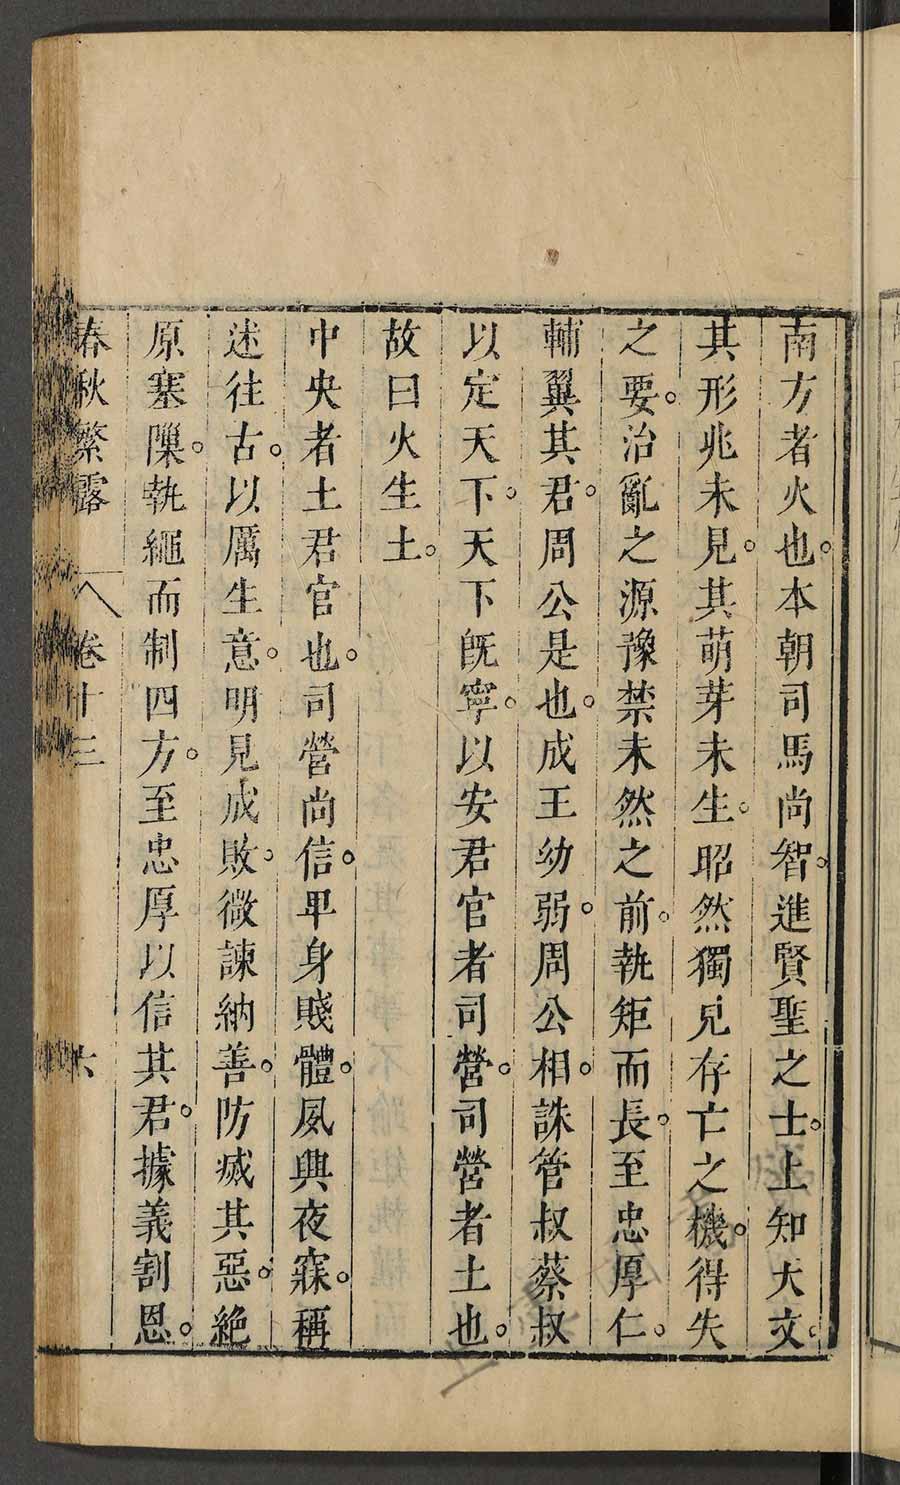 南方者火也。本朝司馬尚智。進賢聖之士。上知天文。
其形兆未見。其萌芽未生。昭然獨見存亡之機。得失
之要。治亂之源豫禁未然之前。執矩而長。至忠厚仁。
輔翼其君。周公是也。成王幼弱。周公相。誅管叔蔡叔
以定天下。天下旣寧。以安君官者司營。司營者土也。
故曰火生土。
中央者土君官也。司營尚信。卑身賤體。夙興夜寐。稱
述往古。以厲生意。明見成敗。微諫納善。防滅其惡。絶
原塞隟。執繩而制四方。至忠厚以信其君。據義割恩。
春秋繁露 卷十三 六